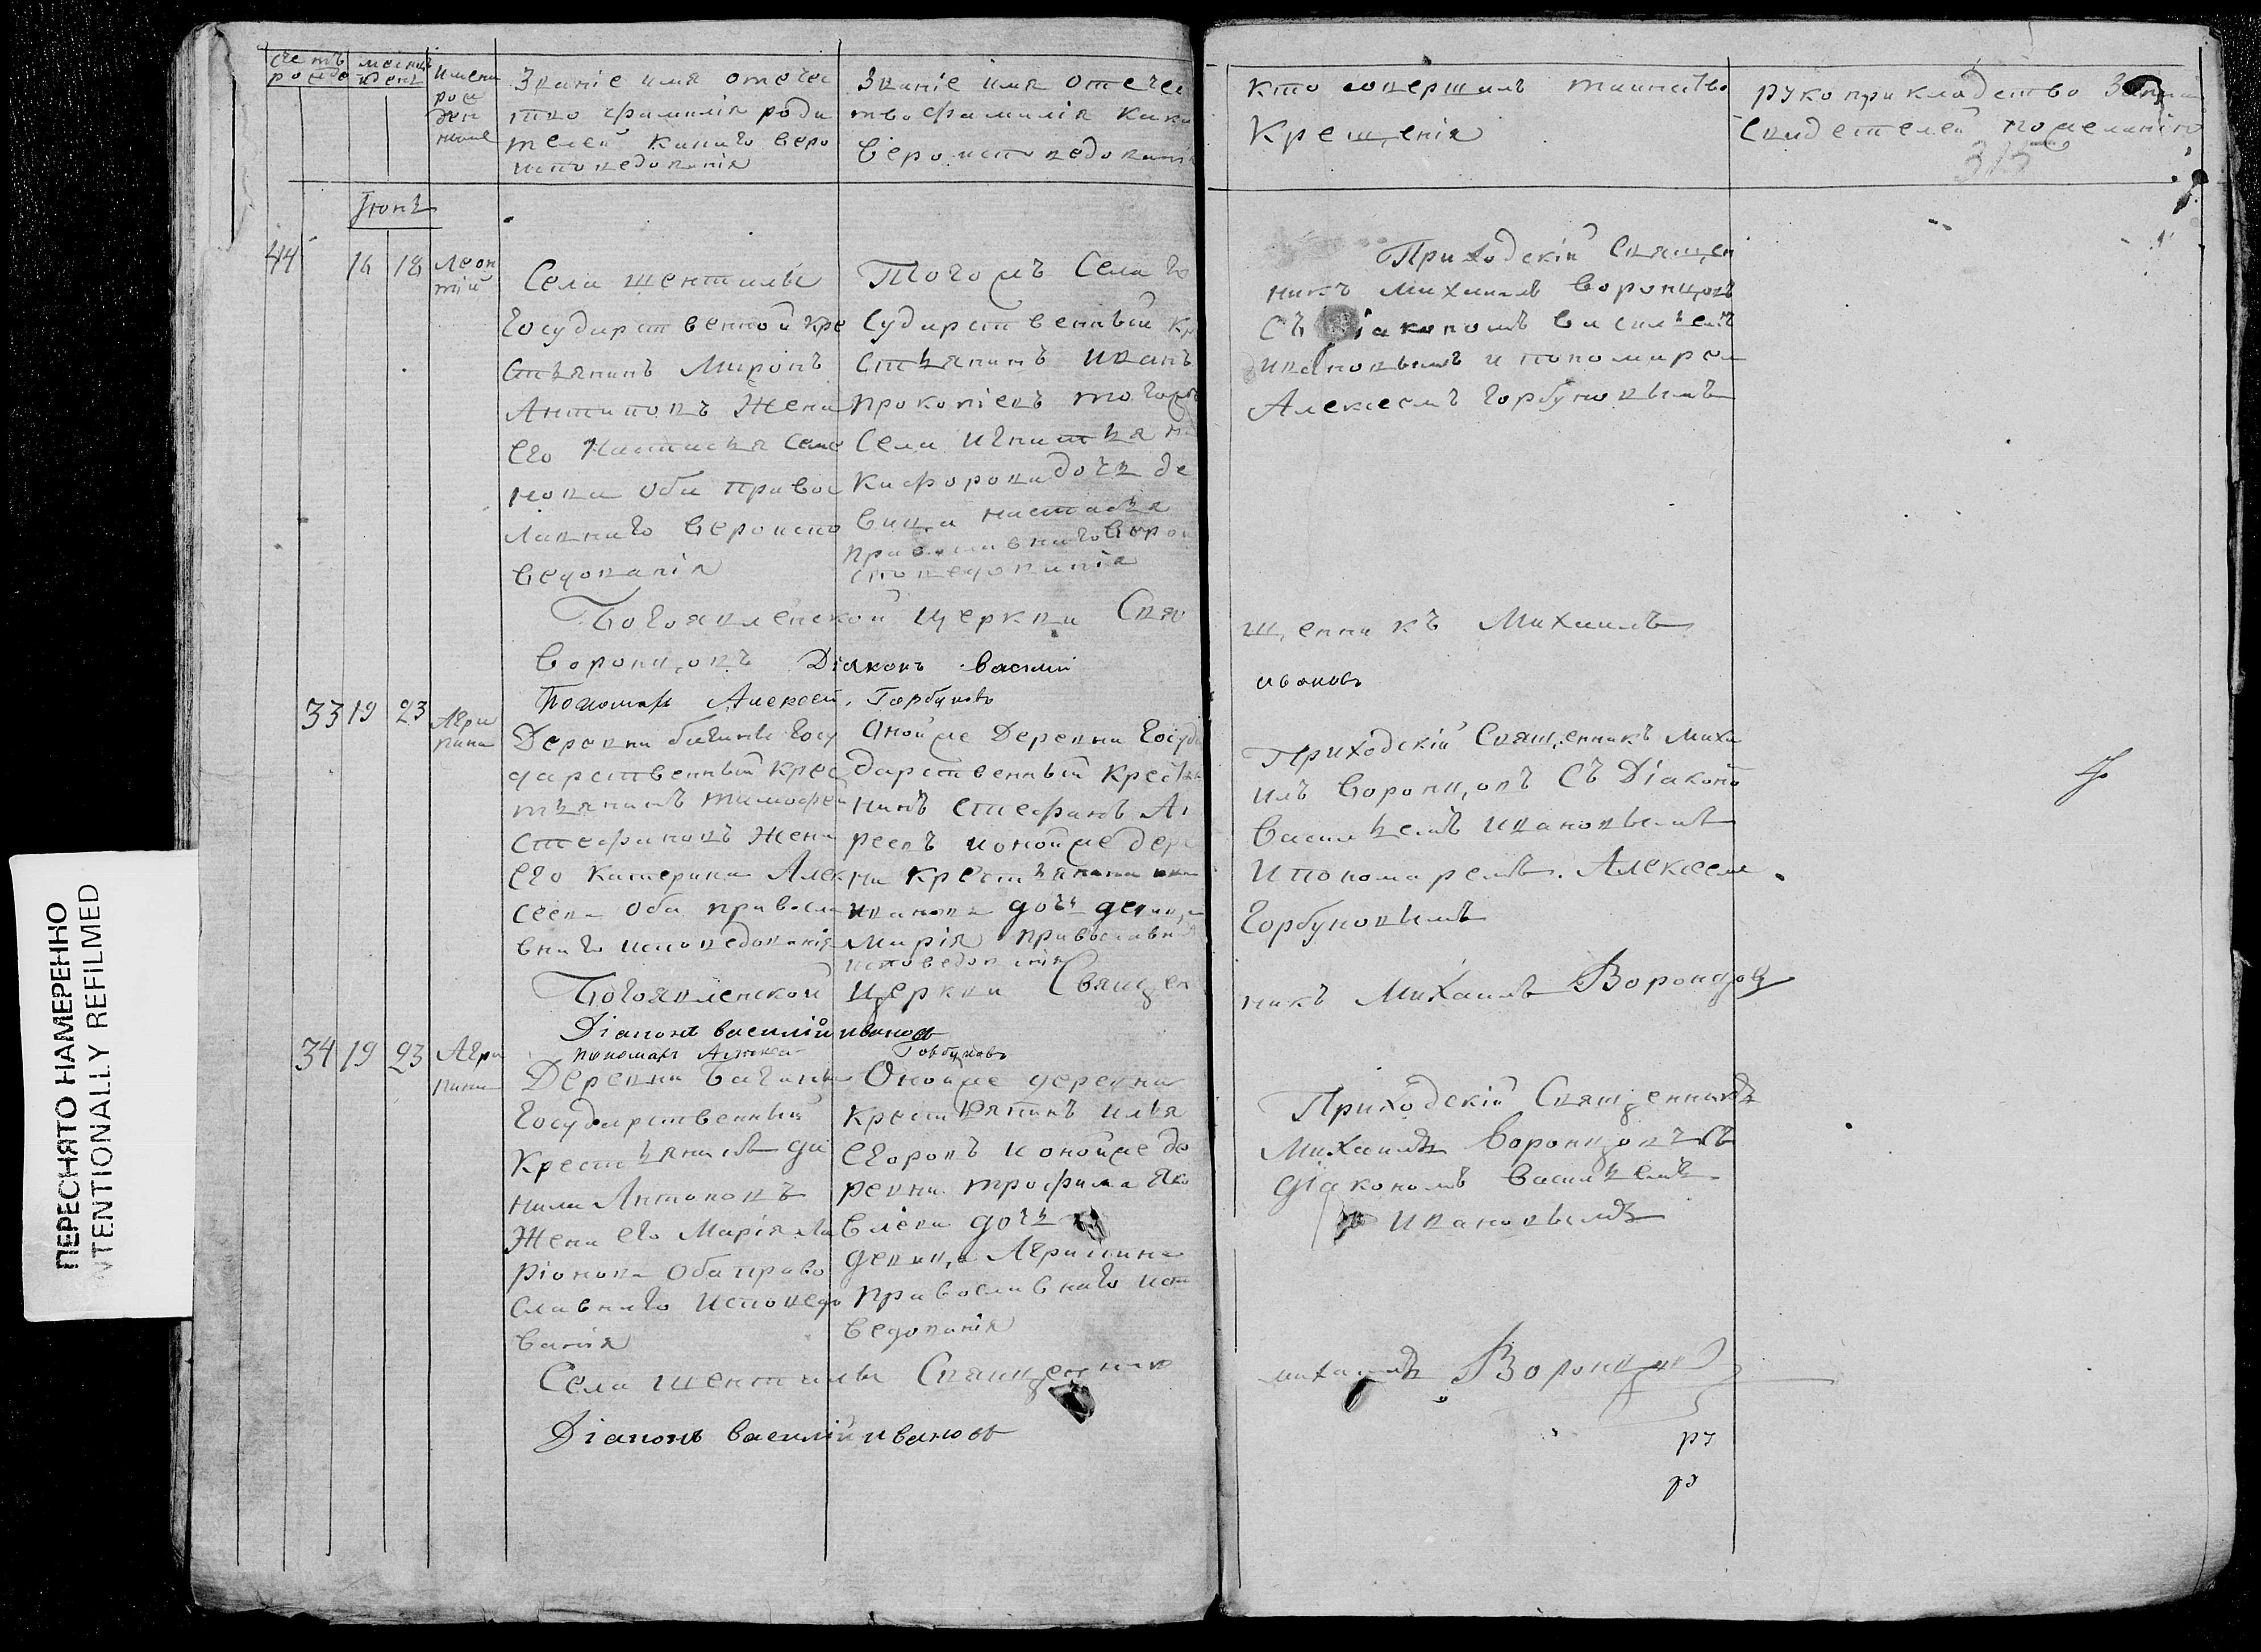 Званіе имя отечес
тво фамилія роди
телей какаго веро
исповедованія
Званіе имя отечес
тво фамилія како
вероисповедовани
кто совершилъ таинство
крещенія
рукоприкладство
свидетелей пожеланію
315
Іюнь
44 16 18 Леон
тій
Села шенталы
Государственной кре
стьянинъ Миронъ
Антиповъ жена
его Настасья Семе
нова оба правос
лавнаго вероиспо
ведованія
Тогожъ Села го
сударственный кр
стьянинъ Иванъ
прокопіевъ тогожъ
Села игнатья ни
кифорова дочь де
вица настасья
православнаго веро
споведованія
Приходскій Священ
никъ михаилъ воронцовъ
съ діакономъ василъемъ
ивановымъ и пономаремъ
Алексеемъ горбуновымъ
Богоявленской церкви Свя
щенникъ Михаилъ
воронцовъ Діаконъ василій
ивановъ
Пономарь Алексей Горбуновъ
33 19 23 Агри
пина
Деревни багины госу
дарственный крес
тьянинъ тимофей
стефановъ жена
его катерина Алек
сеева оба правосла
внаго исповедованія
Оной же Деревни госуда
дарственный крестья
нинъ стефанъ Ан
реевъ и оной же дере
ни крестьянина
иванова дочь девица
марія православна
исповедованія
Приходскій Священникъ миха
илъ воронцовъ съ Діаконо
василъемъ ивановымъ
и пономаремъ Алексеем
горбуновымъ
Богоявленской церкви Священ
никъ Михаилъ Воронцов
Діаконъ василій иванов
пономарь Алексей Горбуновъ
34 19 23 Агри
пина
Деревни багины
государственный
крестьянинъ да
нила Антоновъ
жена его марія ла
ріонова оба право
славнаго исповедо
ванія
Оной же деревни
крестьянинъ илья
егоровъ и оной же де
ревни трофима яко
влева дочь
девица Агрипина
православнаго исп
ведованія
Приходскій Священникъ
Михаилъ воронцовъ съ
діакономъ василъемъ
ивановымъ
Села шенталы Священник
михаилъ Воронцов
Діаконъ василій иванов
ру
ру
ПЕРЕСНЯТО НАМЕРЕННО
NTENTIONALLY REFILMED